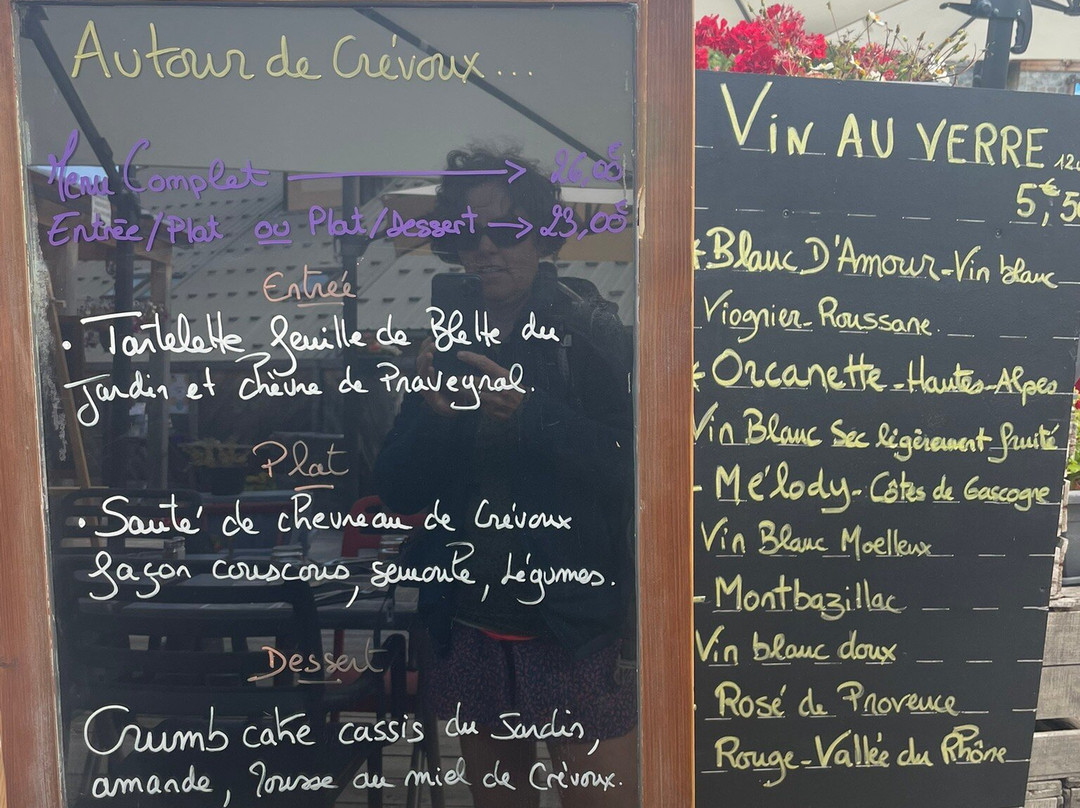 Autour de Crévoux...
Menu Complet → 26,00€
Entrée/Plat ou Plat/Dessert → 23,00€
Entrée
• Tartelette feuille de Blette du
Jardin et chèvre de Praveyral.
Plat
• Sauté de chevreau de Crévoux
façon couscous, semoule, Légumes.
Dessert
Crumb cake cassis du Jardin,
amande, Mousse au miel de Crévoux.
VIN AU VERRE
5€,5
Blanc D'Amour - Vin blanc
Viognier - Roussane
Orcanette - Hautes-Alpes
Vin Blanc Sec légèrement fruité
- Mélody - Côtes de Gascogne
Vin Blanc Moelleux
- Montbazillac
Vin blanc doux
Rosé de Provence
Rouge - Vallée du Rhône